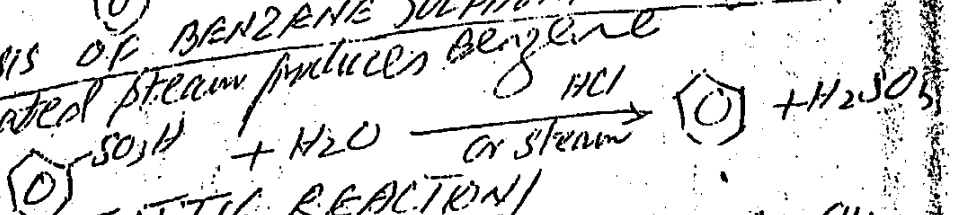 SIS OF BENZENE SULPHON
ated steam produces Benzene
SO3H + H2O HCl or steam + H2SO
REACTION